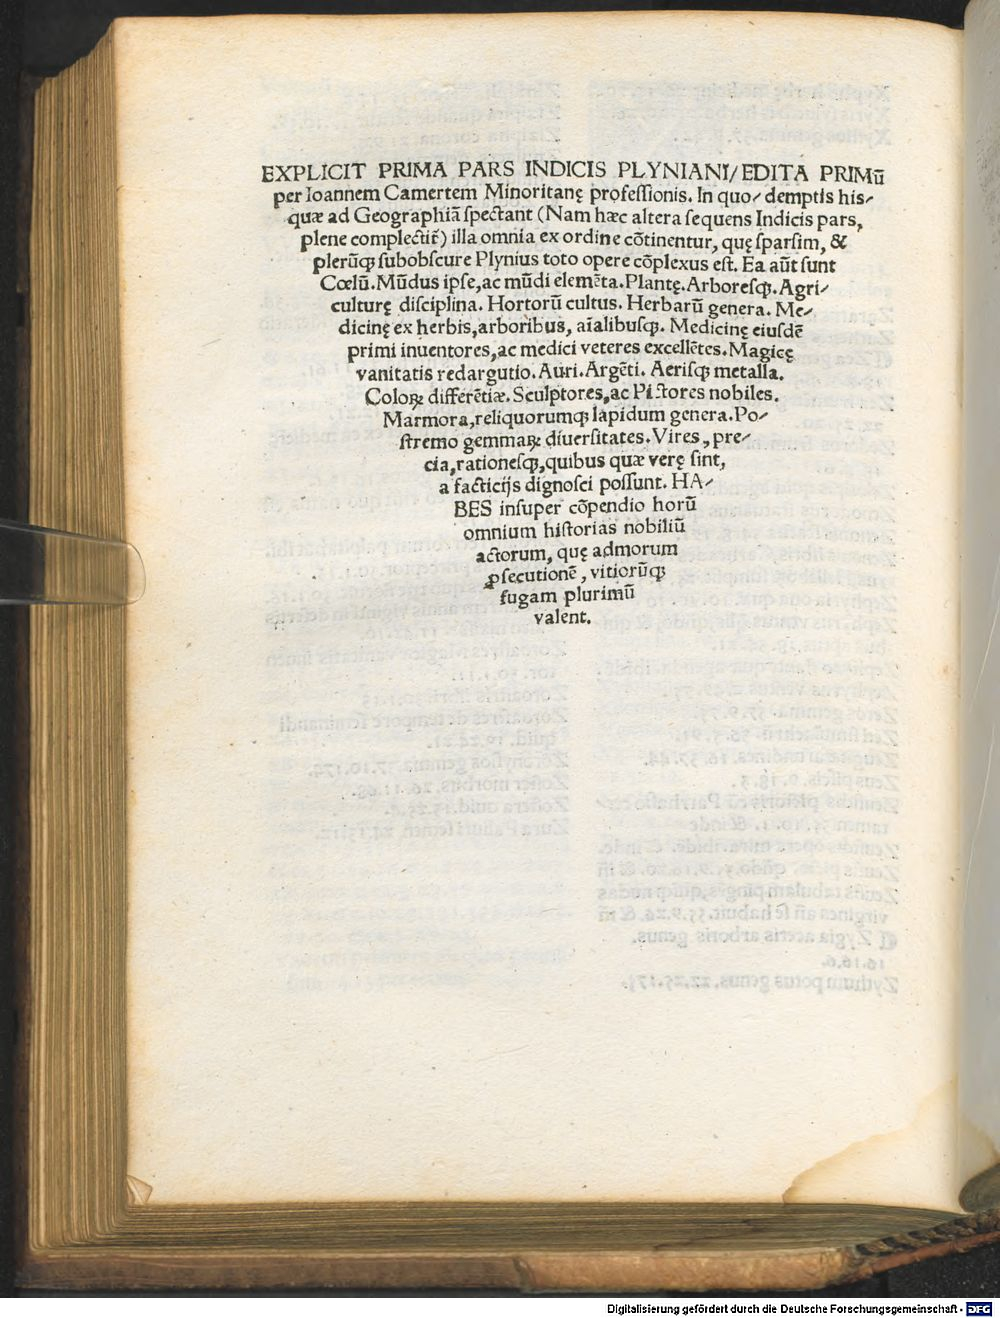 EXPLICIT PRIMA PARS INDICIS PLYNIANI/EDITA PRIMū
per Ioannem Camertem Minoritanę professionis. In quo/ demptis his/
quæ ad Geographiā spectant (Nam hæc altera sequens Indicis pars,
plene complectit̃) illa omnia ex ordine cōtinentur, quę sparsim, &
plerūqꝫ subobscure Plynius toto opere cōplexus est. Ea aūt sunt
Cœlū. Mūdus ipse, ac mūdi elemēta. Plantę. Arboresqꝫ. Agri/
culturę disciplina. Hortorū cultus. Herbarū genera. Me/
dicinę ex herbis, arboribus, aīalibusqꝫ. Medicinę eiusdē
primi inuentores, ac medici veteres excellētes. Magicę
vanitatis redargutio. Auri. Argēti. Aerisqꝫ metalla.
Coloꝝ differētiæ. Sculptores, ac Pictores nobiles.
Marmora, reliquorumqꝫ lapidum genera. Po/
stremo gemmaꝝ diuersitates. Vires, pre/
cia, rationesqꝫ, quibus quæ verę sint,
a facticijs dignosci possunt. HA/
BES insuper cōpendio horū
omnium historias nobiliū
actorum, quę admorum
ꝓsecutionē, vitiorūqꝫ
fugam plurimū
valent.
Digitalisierung gefördert durch die Deutsche Forschungsgemeinschaft - DFG